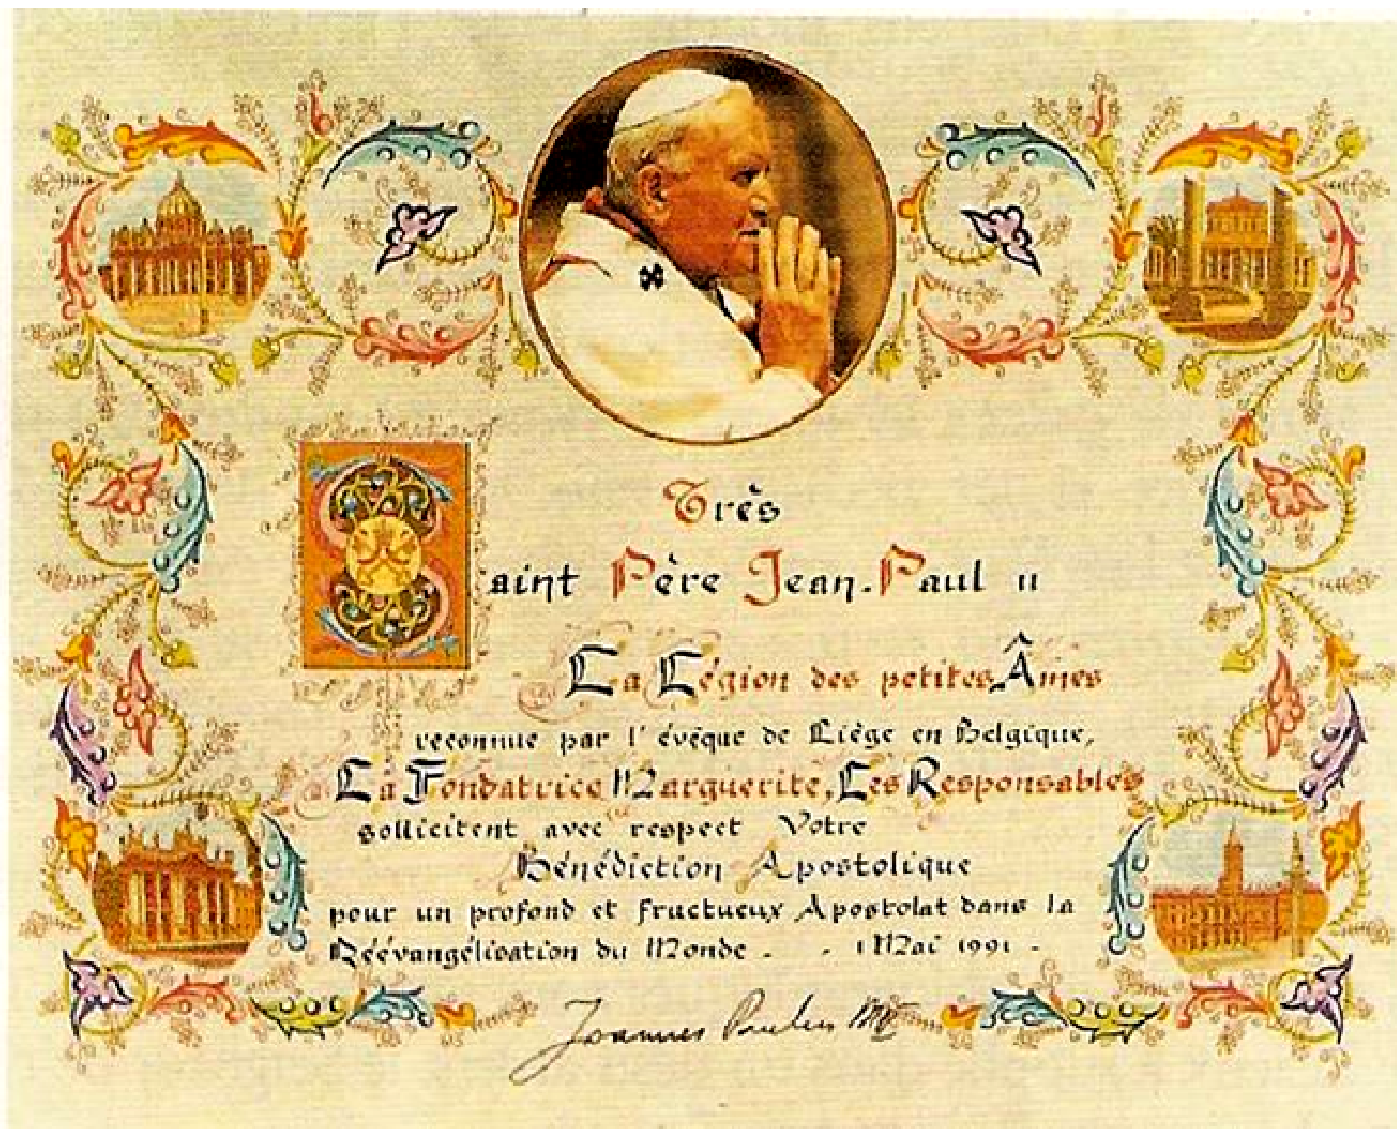 Très
Saint Père Jean-Paul II
La Légion des petites Âmes
reconnue par l'évêque de Liège en Belgique,
La Fondatrice Marguerite, Les Responsables
sollicitent avec respect Votre
Bénédiction Apostolique
pour un profond et fructueux Apostolat dans la
Réévangélisation du Monde - . 1 Mai 1991 -
Joannes Paulus